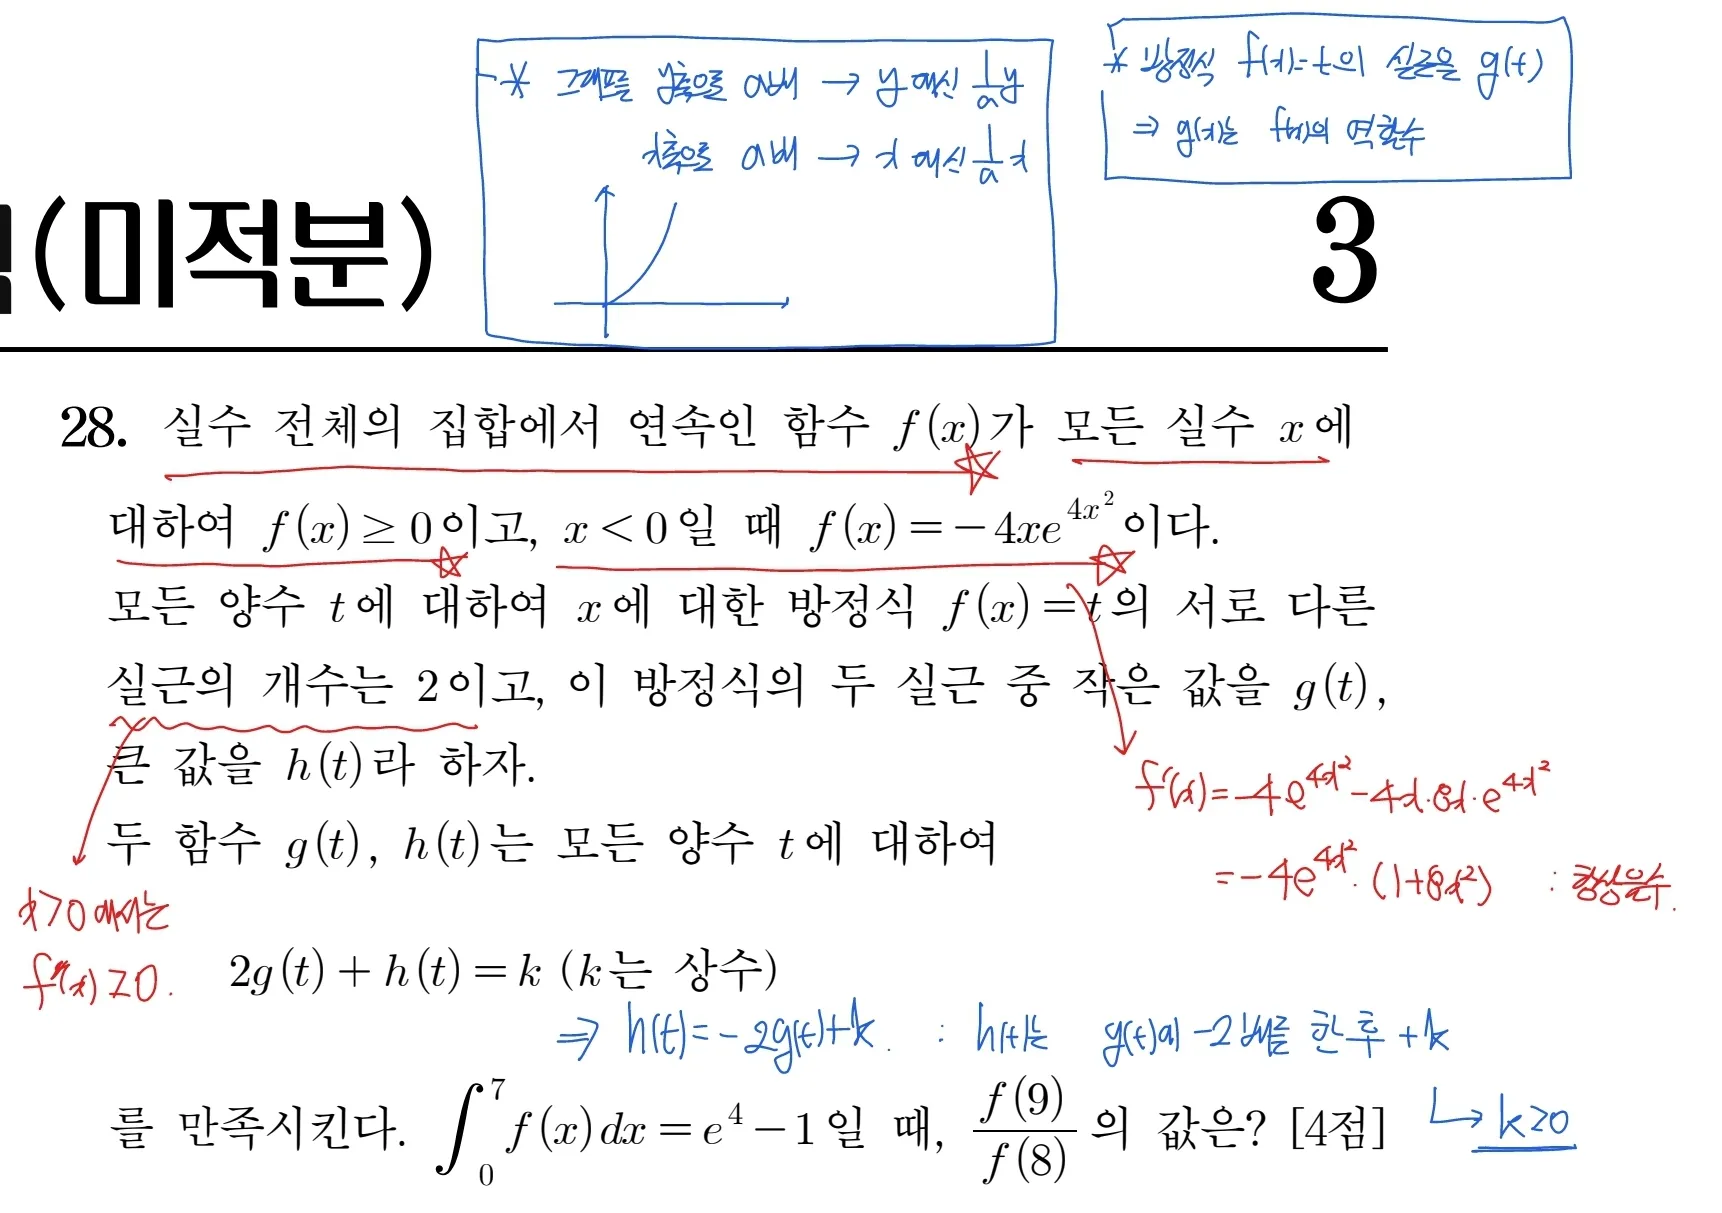 * 그래프를 y축으로 a배 → y 대신 1/a y
x축으로 a배 → x 대신 1/a x
* 방정식 f(x)=t의 실근을 g(t)
⇒ g(x)는 f(x)의 역함수
(미적분)
3
28. 실수 전체의 집합에서 연속인 함수 f(x)가 모든 실수 x에
대하여 f(x)≥0이고, x<0일 때 f(x)=-4xe^{4x^2}이다.
모든 양수 t에 대하여 x에 대한 방정식 f(x)=t의 서로 다른
실근의 개수는 2이고, 이 방정식의 두 실근 중 작은 값을 g(t),
큰 값을 h(t)라 하자.
f'(x)=-4e^{4x^2}-4x·8x·e^{4x^2}
두 함수 g(t), h(t)는 모든 양수 t에 대하여
=-4e^{4x^2}·(1+8x^2) : 항상 음수.
x>0에서는
f'(x)≥0.
2g(t)+h(t)=k (k는 상수)
⇒ h(t)=-2g(t)+k. : h(t)는 g(t)에 -2배를 한 후 +k
를 만족시킨다. ∫_0^7 f(x)dx=e^4-1일 때, f(9)/f(8)의 값은? [4점]
→ k≥0